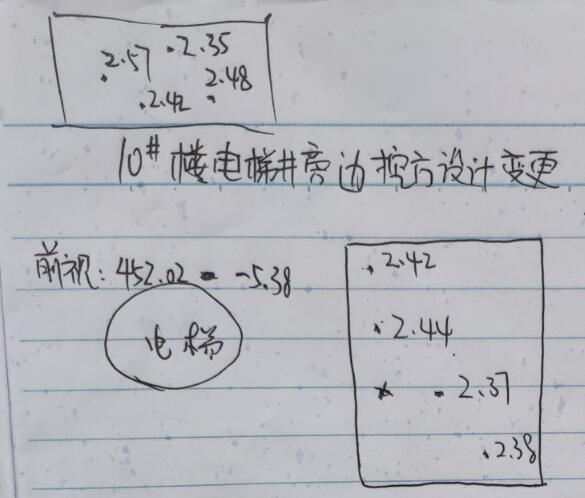 .2.35
2.57
2.48
.2.42
10#楼电梯井旁边挖方设计变更
前视：452.02 - -5.38
电梯
.2.42
.2.44
.2.37
.2.38